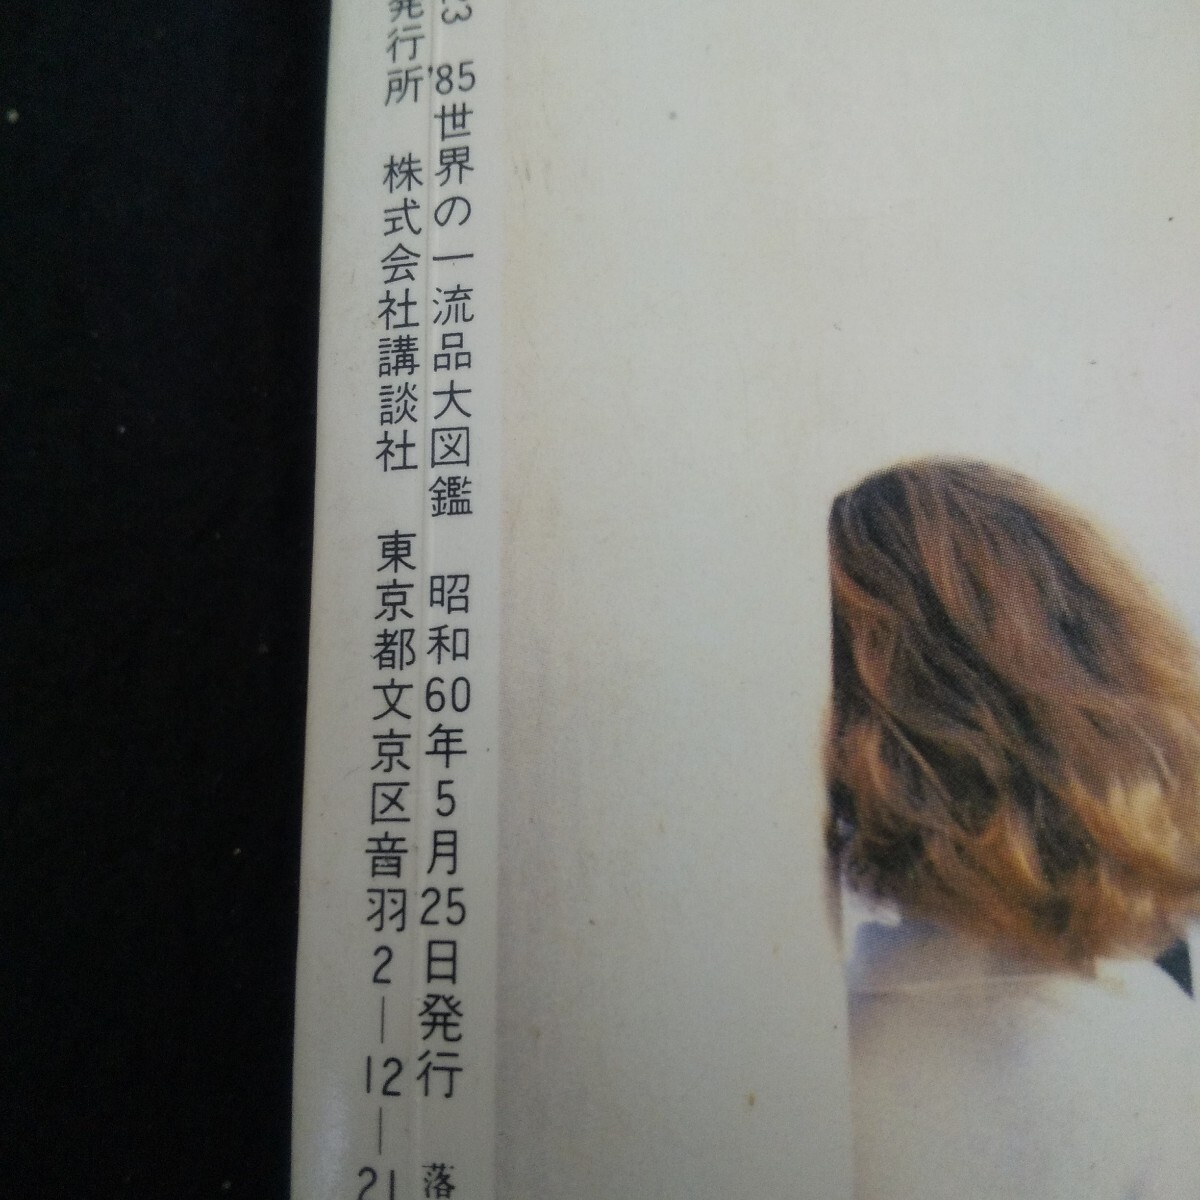 3 '85世界の一流品大図鑑 昭和60年5月25日発行 落
発行所 株式会社講談社 東京都文京区音羽2―12―21